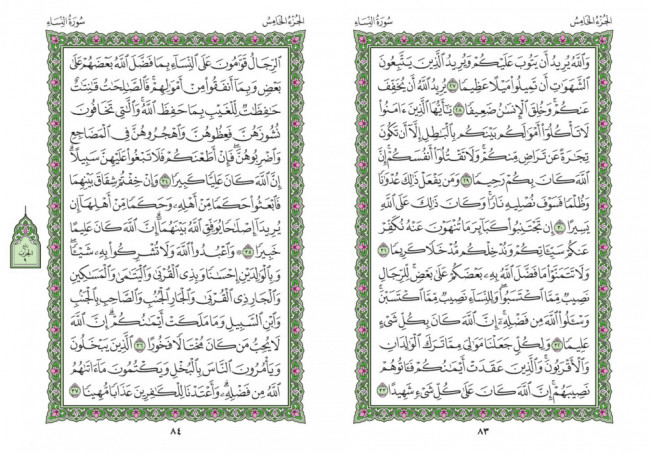 الجزء الخامس
سورة النساء
والله يريد أن يتوب عليكم ويريد الذين يتبعون
الشهوات أن تميلوا ميلا عظيما ٢٧ يريد الله أن يخفف
عنكم وخلق الإنسان ضعيفا ٢٨ يأيها الذين ءامنوا
لا تأكلوا أموالكم بينكم بالبطل إلا أن تكون
تجرة عن تراض منكم ولا تقتلوا أنفسكم إن
الله كان بكم رحيما ٢٩ ومن يفعل ذلك عدونا
وظلما فسوف نصليه نارا وكان ذلك على الله
يسيرا ٣٠ إن تجتنبوا كبائر ما تنهون عنه نكفر
عنكم سيئاتكم وندخلكم مدخلا كريما ٣١
ولا تتمنوا ما فضل الله به بعضكم على بعض للرجال
نصيب مما اكتسبوا وللنساء نصيب مما اكتسبن
وسئلوا الله من فضله إن الله كان بكل شيء
عليما ٣٢ ولكل جعلنا موالي مما ترك الوالدان
والأقربون والذين عقدت أيمنكم فئاتوهم
نصيبهم إن الله كان على كل شيء شهيدا ٣٣
٨٣
الجزء الخامس
سورة النساء
الرجال قومون على النساء بما فضل الله بعضهم على
بعض وبما أنفقوا من أمولهم فالصلحت قنتت
حفظت للغيب بما حفظ الله والتي تخافون
نشوزهن فعظوهن واهجروهن في المضاجع
واضربوهن فإن أطعنكم فلا تبغوا عليهن سبيلا
إن الله كان عليا كبيرا ٣٤ وإن خفتم شقاق بينهما
فابعثوا حكما من أهله وحكما من أهلها إن
يريدا إصلحا يوفق الله بينهما إن الله كان عليما
خبيرا ٣٥ واعبدوا الله ولا تشركوا به شيئا
وبالولدين إحسنا وبذي القربى واليتمى والمسكين
والجار ذي القربى والجار الجنب والصاحب بالجنب
وابن السبيل وما ملكت أيمنكم إن الله
لا يحب من كان مختالا فخورا ٣٦ الذين يبخلون
ويأمرون الناس بالبخل ويكتمون ما ءاتىهم
الله من فضله وأعتدنا للكفرين عذابا مهينا ٣٧
٨٤